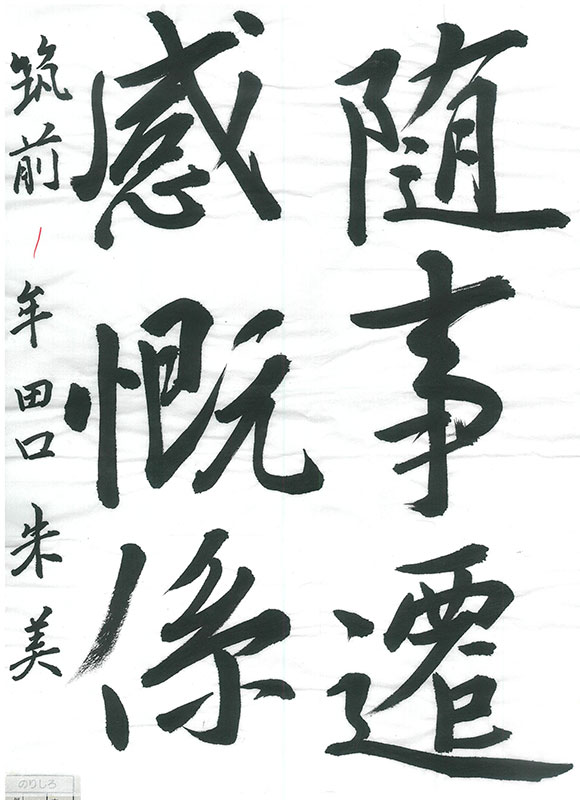 随事遷
感慨係
筑前
牟田口朱美
のりしろ